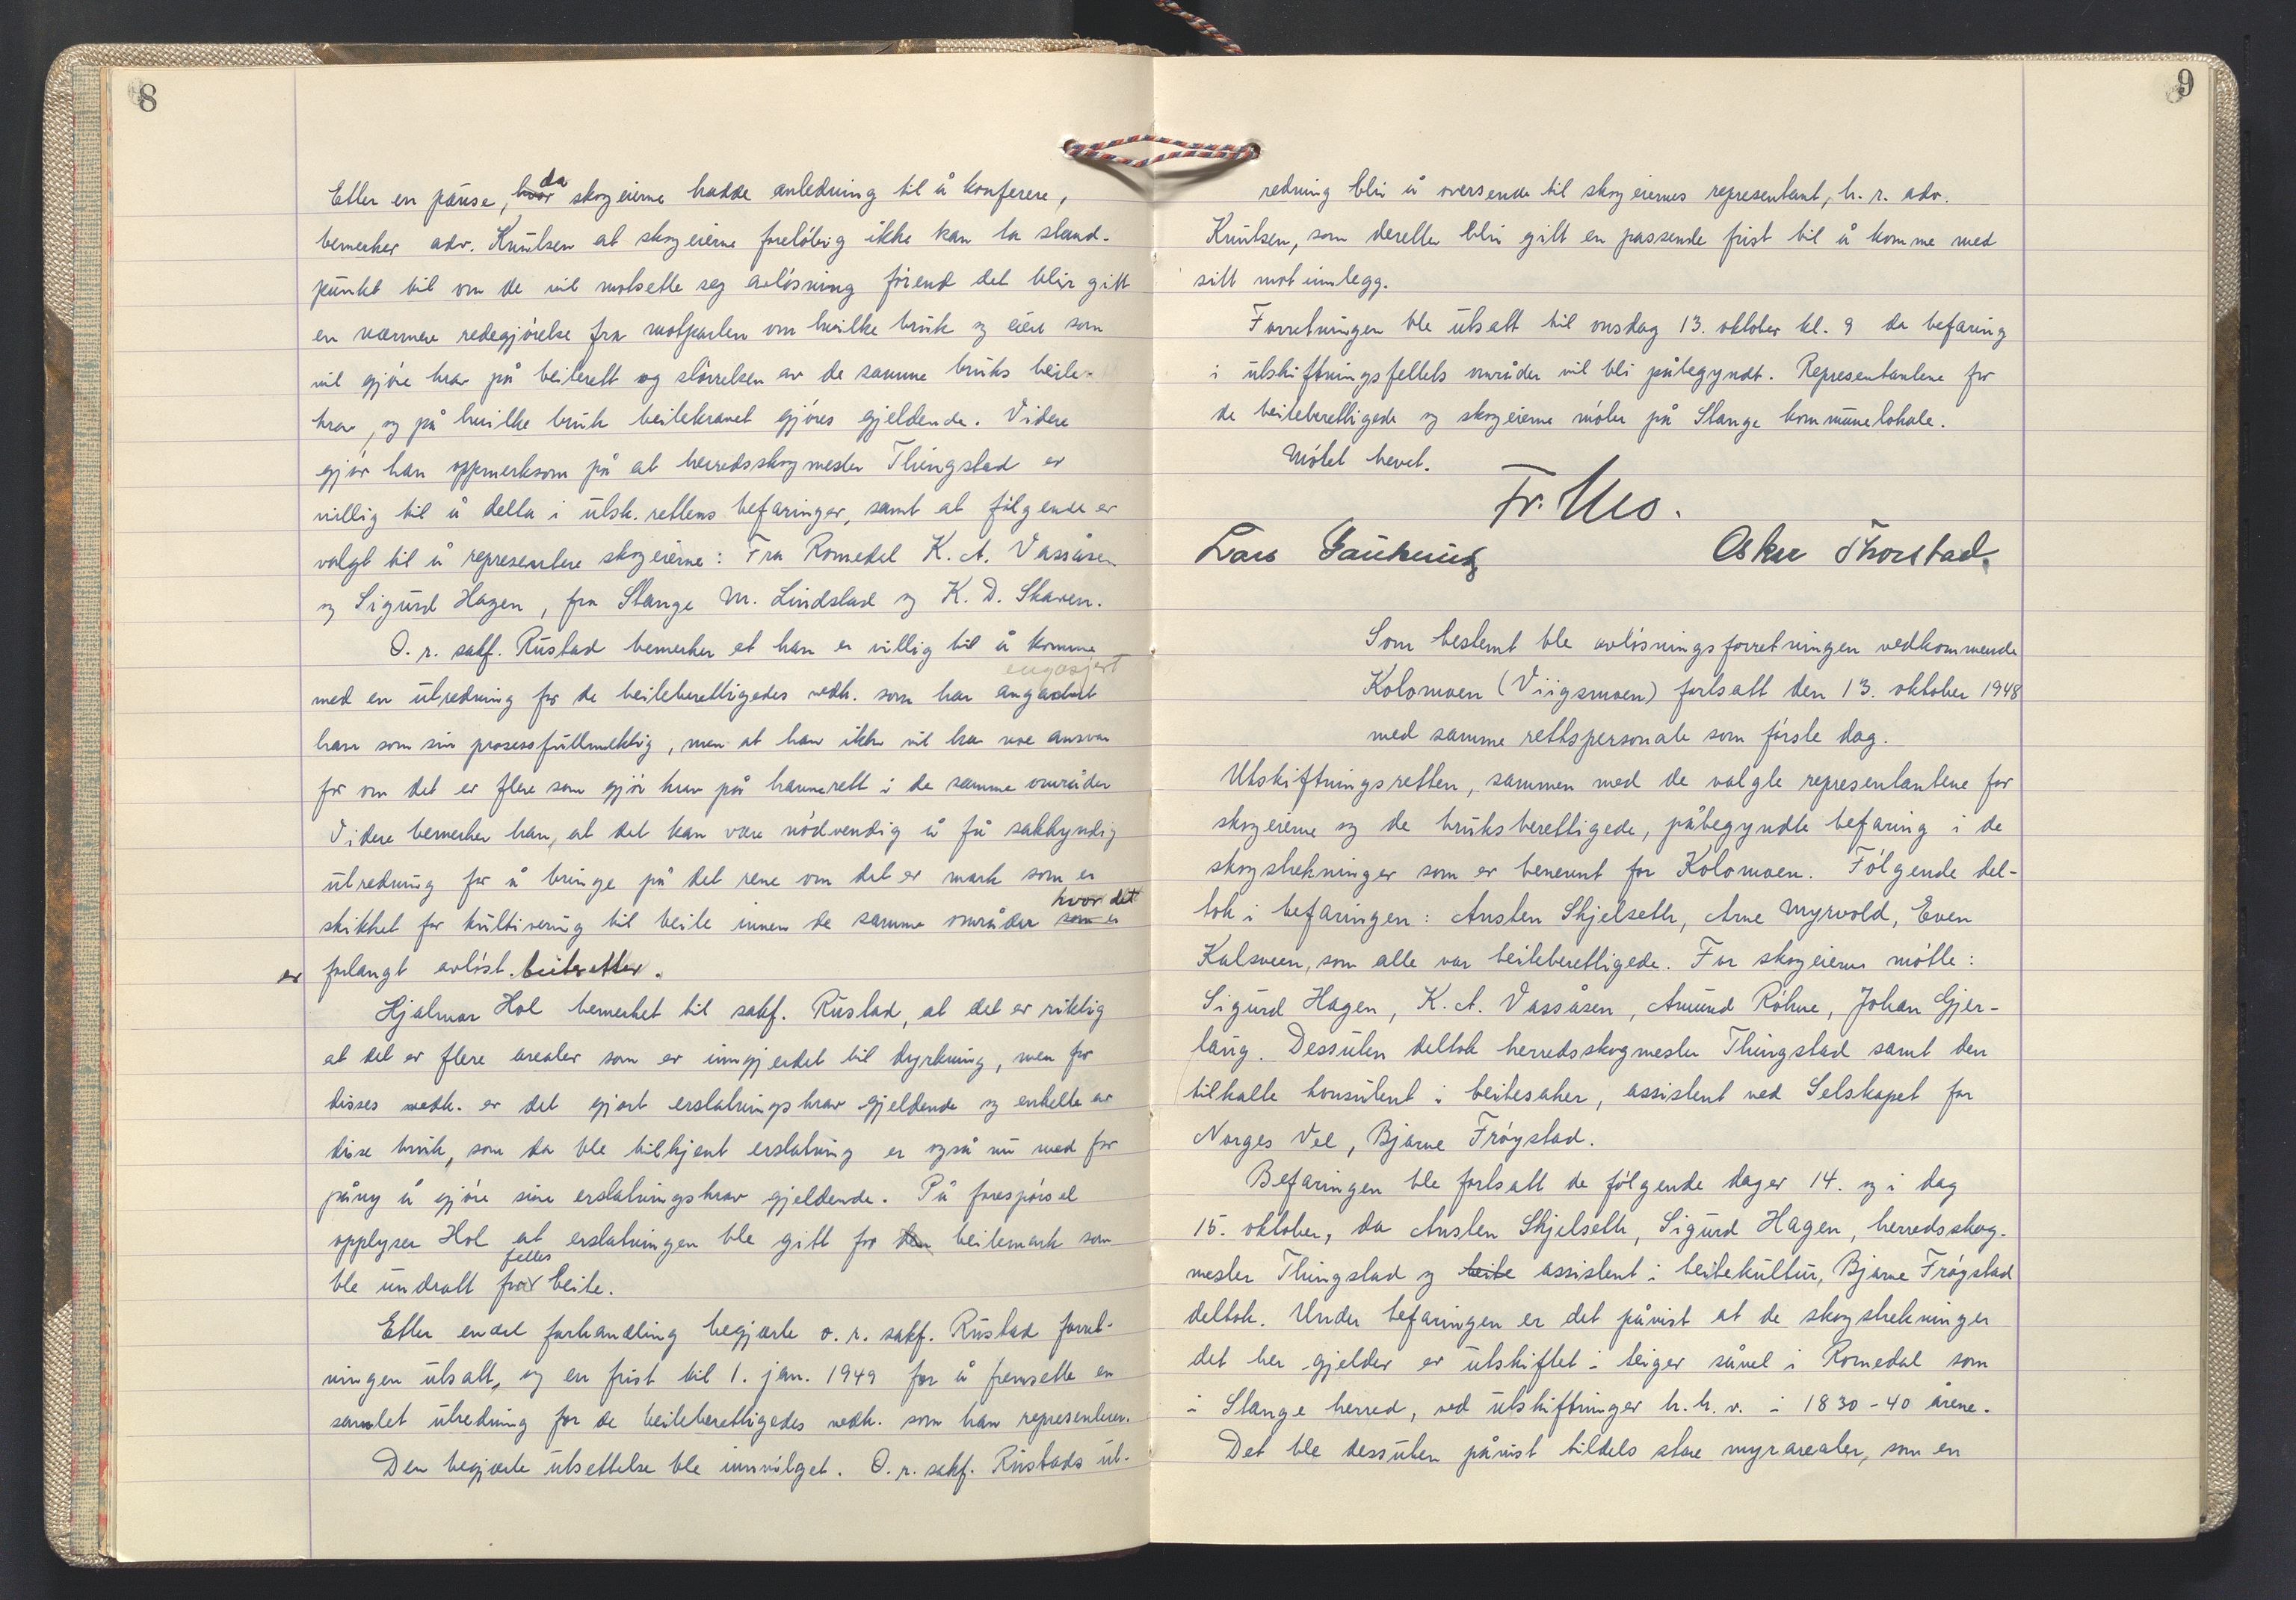 8
Etter en pause, hvor da skogeierne hadde anledning til å konferere,
bemerker adv. Knutsen at skogeierne foreløbig ikke kan ta stand-
punkt til om de vil motsette seg avløsning førend det blir gitt
en nærmere redegjørelse fra motparten om hvilke bruk og eiere som
vil gjøre krav på beiterett og størrelsen av de samme bruks beite-
krav, og på hvilke bruk beitekravet gjøres gjeldende. Videre
gjør han oppmerksom på at herredsskogmester Thingstad er
villig til å delta i utsk.rettens befaringer, samt at følgende er
valgt til å representere skogeierne: Fra Romedal K. A. Vassåsen
og Sigurd Hagen, fra Stange M. Lindstad og K. D. Skaven.
O. r. sakf. Rustad bemerker at han er villig til å komme
engasjert
med en utredning for de beiteberettigedes vedk. som har
ham som sin prosessfullmektig, men at han ikke vil ha noe ansvar
for om det er flere som gjør krav på havnerett i de samme områder
Videre bemerker han, at det kan være nødvendig å få sakkyndig
utredning for å bringe på det rene om det er mark som er
skikket for kultivering til beite innen de samme områder som er hvor det
er forlangt avløst beiteretter.
Hjalmar Hol bemerket til sakf. Rustad, at det er riktig
at det er flere arealer som er inngjerdet til dyrkning, men for
disses vedk. er det gjort erstatningskrav gjeldende og enkelte av
disse bruk, som da ble tilkjent erstatning er også nu med for
påny å gjøre sine erstatningskrav gjeldende. På forespørsel
opplyser Hol at erstatningen ble gitt for den beitemark som
ble undratt fra felles beite.
Etter endel forhandling begjærte o. r. sakf. Rustad forret-
ningen utsatt, og en frist til 1. jan. 1949 for å fremsette en
samlet utredning for de beiteberettigedes vedk. som han representerer.
Den begjærte utsettelse ble innvilget. O. r. sakf. Rustads ut-
9
redning blir å oversende til skogeiernes representant, h. r. adv.
Knutsen, som deretter blir gitt en passende frist til å komme med
sitt motinnlegg.
Forretningen ble utsatt til onsdag 13. oktober kl. 9 da befaring
i utskiftningsfeltets områder vil bli påbegyndt. Representantene for
de beiteberettigede og skogeierne møter på Stange kommunelokale.
Møtet hevet.
Fr. Mo.
Lars Gaukerud Oskar Thorstad.
Som bestemt ble avløsningsforretningen vedkommende
Kolomoen (Viigsmoen) fortsatt den 13. oktober 1948
med samme rettspersonale som første dag.
Utskiftningsretten, sammen med de valgte representantene for
skogeierne og de bruksberettigede, påbegyndte befaring i de
skogstrekninger som er benevnt for Kolomoen. Følgende del-
tok i befaringen: Austen Skjelseth, Arne Myrvold, Even
Kalsveen, som alle var beiteberettigede. For skogeierne møtte:
Sigurd Hagen, K. A. Vassåsen, Amund Røhne, Johan Gjer-
laug. Dessuten deltok herredsskogmester Thingstad samt den
tilkalte konsulent i beitesaker, assistent ved Selskapet for
Norges Vel, Bjarne Frøystad.
Befaringen ble fortsatt de følgende dager 14. og i dag
15. oktober, da Austen Skjelseth, Sigurd Hagen, herredsskog-
mester Thingstad og beite assistent i beitekultur, Bjarne Frøystad
deltok. Under befaringen er det påvist at de skogstrekninger
det her gjelder er utskiftet i teiger såvel i Romedal som
i Stange herred, ved utskiftninger h. h. v. i 1830-40 årene.
Det ble dessuten påvist tildels store myrarealer, som en